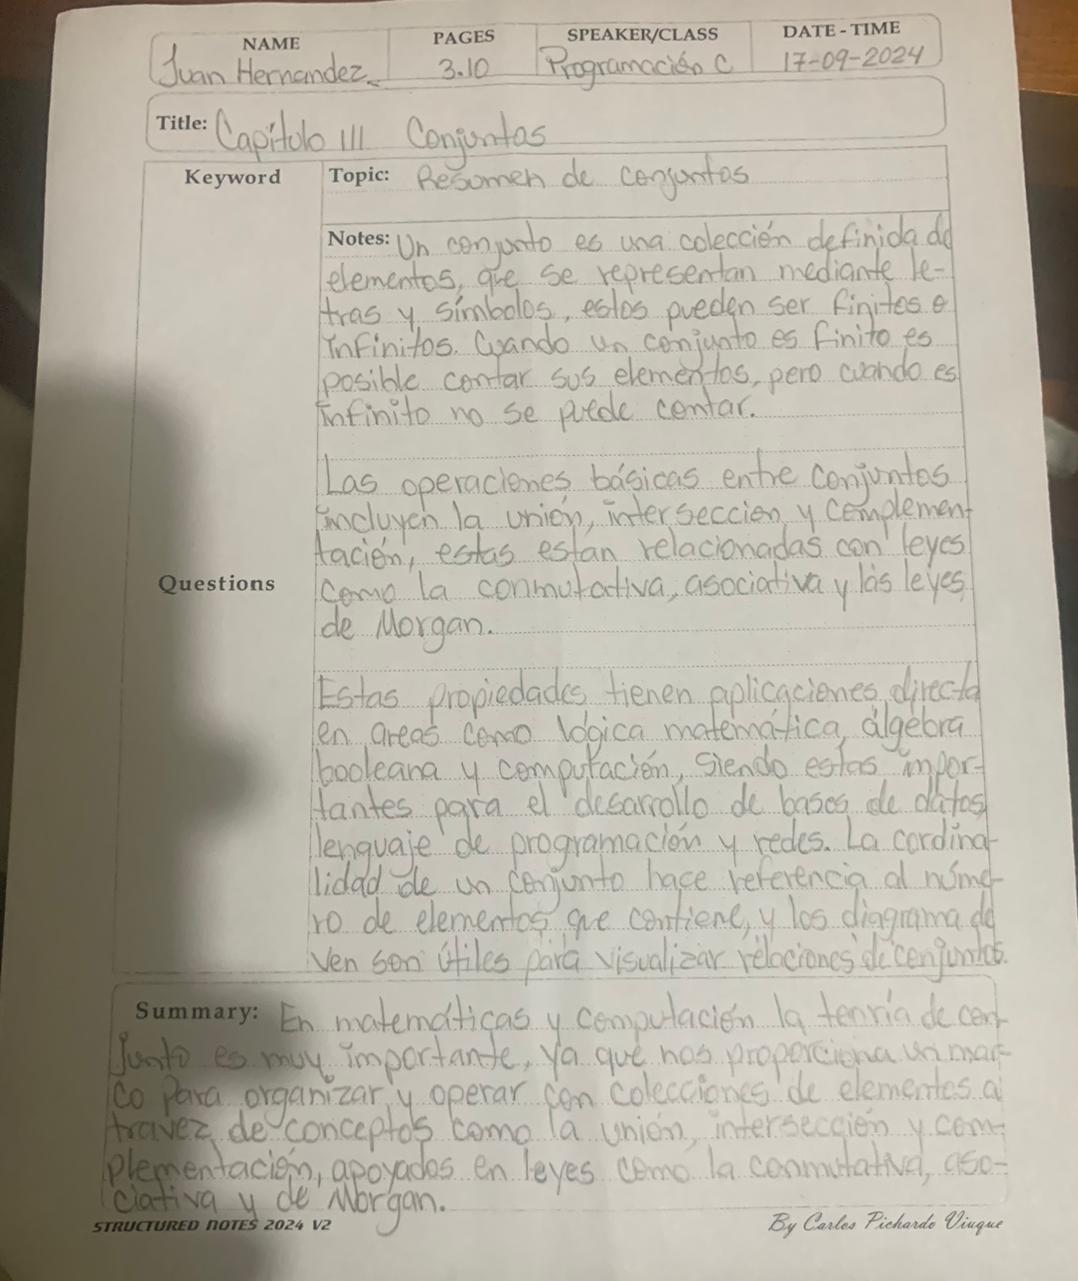 NAME PAGES SPEAKER/CLASS DATE - TIME
Juan Hernandez 3.10 Programación C 17-09-2024
Title: Capítulo III Conjuntos
Keyword
Topic: Resumen de conjuntos
Notes: Un conjunto es una colección definida de
elementos, que se representan mediante le-
tras y símbolos, estos pueden ser finitos o
infinitos. Cuando un conjunto es finito es
posible contar sus elementos, pero cuando es
infinito no se puede contar.
Las operaciones básicas entre conjuntos
incluyen la unión, interseccion y complemen-
tación, estas estan relacionadas con leyes
Questions
como la conmutativa, asociativa y las leyes
de Morgan.
Estas propiedades tienen aplicaciones directa
en areas como lógica matemática, álgebra
booleana y computación, siendo estas impor-
tantes para el desarrollo de bases de datos
lenguaje de programación y redes. La cardina-
lidad de un conjunto hace referencia al núme-
ro de elementos que contiene, y los diagrama de
Ven son útiles para visualizar relaciones de conjuntos.
Summary: En matemáticas y computación la tenría de con-
junto es muy importante, ya que nos proporciona un mar-
co para organizar y operar con colecciones de elementos a
travez de conceptos como la unión, intersección y com-
plementación, apoyados en leyes como la conmutativa, aso-
ciativa y de Morgan.
STRUCTURED NOTES 2024 V2 By Carlos Pichardo Viuque